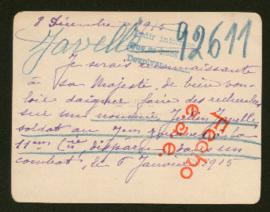 8 Décembre 1915
Javelle 92611
Je serais reconnaissante
à Sa Majesté, de bien vou-
loir daigner faire des recherches
sur un nommé Javelle
soldat au 7me
11me Cie, disparu dans un
combat, le 8 Janvier 1915